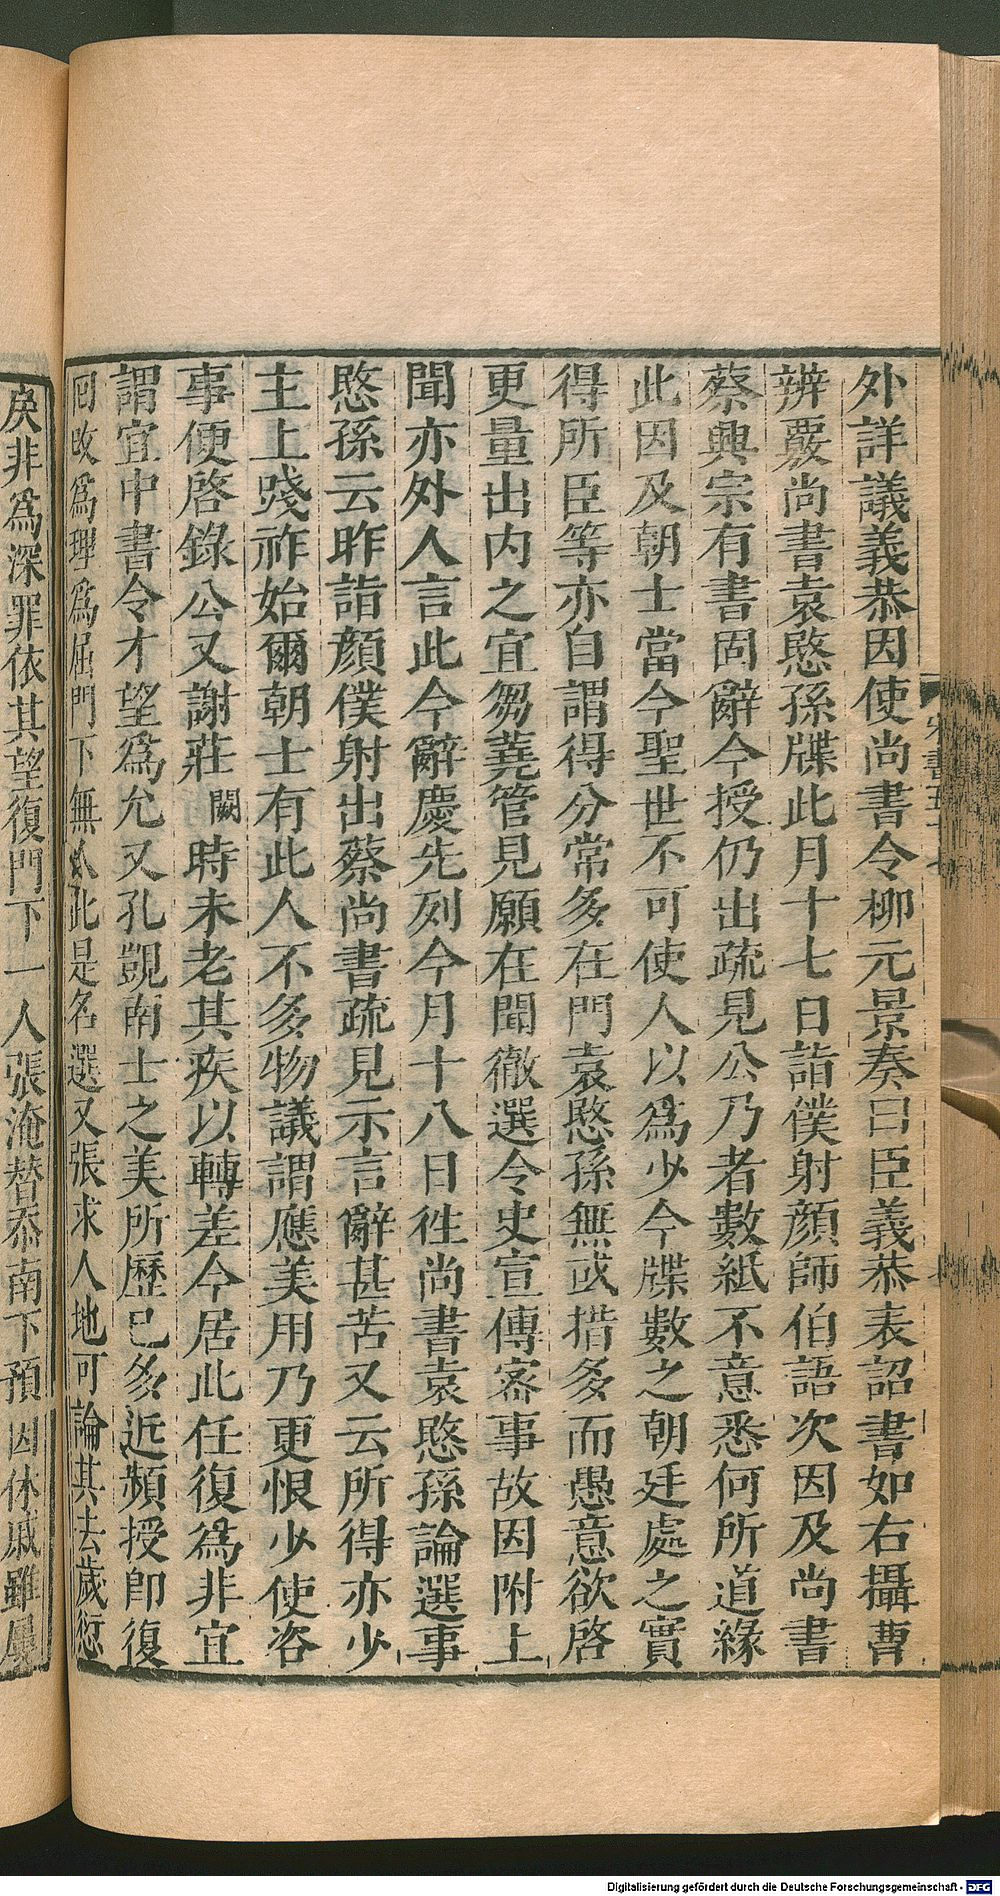 外詳議義恭因使尚書令柳元景奏曰臣義恭表詔書如右攝曹
辨覈尚書袁愍孫牒此月十七日詣僕射顏師伯語次因及尚書
蔡興宗有書固辭今授仍出疏見公乃者數紙不意悉何所道緣
此因及朝士當今聖世不可使人以爲少今牒數之朝廷處之實
得所臣等亦自謂得分常多在門袁愍孫無或措多而愚意欲啓
更量出内之宜芻蕘管見願在聞徹選令史宣傳密事故因附上
聞亦外人言此今辭慶先列今月十八日往尚書袁愍孫論選事
愍孫云昨詣顏僕射出蔡尚書疏見示言辭甚苦又云所得亦少
主上踐祚始爾朝士有此人不多物議謂應美用乃更恨少使咨
事便啓錄公又謝莊闕時未老其疾以轉差今居此任復爲非宜
謂宜中書令才望爲允又孔覬南士之美所歷已多近頻授卽復
回改爲理爲屈門下無人此是名選又張永人地可論其去歲愆
戾非爲深罪依其望復門下一人張淹替忝南下預因休戚雖屢
宋書五十七
Digitalisierung gefördert durch die Deutsche Forschungsgemeinschaft - DFG